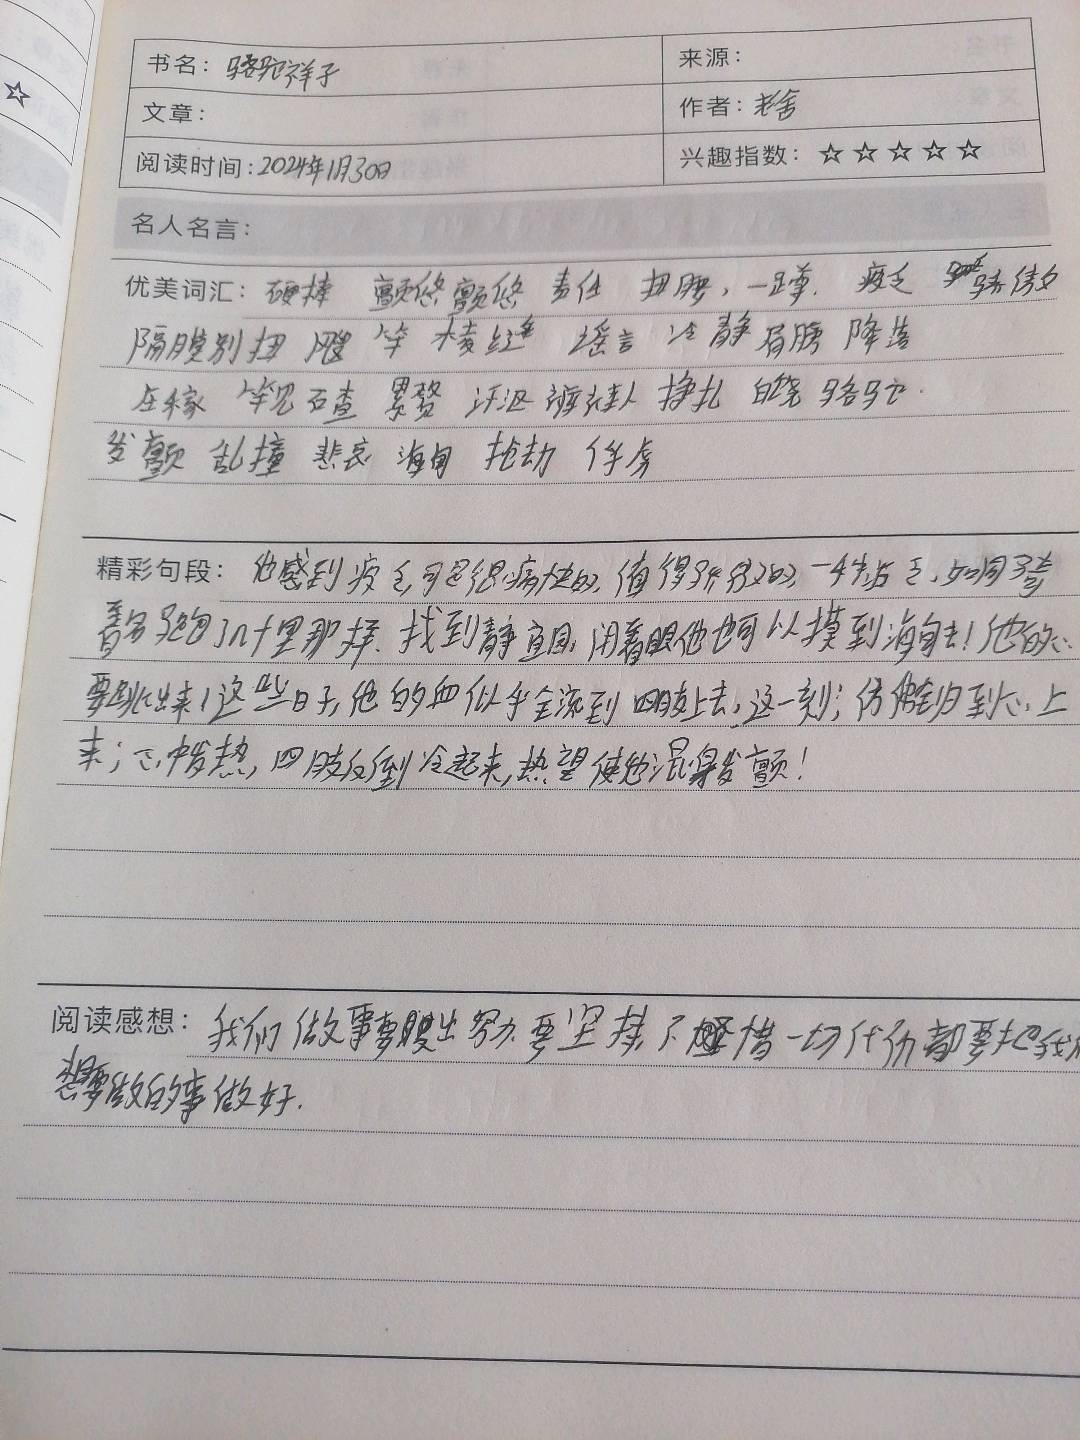 书名：骆驼祥子 来源：
文章： 作者：老舍
阅读时间：2024年1月30日 兴趣指数：☆☆☆☆☆
名人名言：
优美词汇：硬棒 颤悠颤悠 责任 扭腰，一蹲. 疲乏 骄傲
隔膜别扭 嗖 竿 棱缝 谣言 冷静 肩膀 降落
庄稼 窄 碴 累赘 挣扎 白 骆驼.
发颤 乱撞 悲哀 海甸 抢劫 俘虏
精彩句段：他感到疲乏,可是很痛快的,值得的,一种疲乏,如同骑
着名马跑了几十里那样.找到静宜园,闭着眼他也可以摸到海甸去！他的心
要跳出来！这些日子,他的血似乎全流到四肢上去,这一刻；仿佛全归到心上
来；心中发热,四肢反倒冷起来,热望使他混身发颤！
阅读感想：我们做事要付出努力要坚持,不惜一切代价都要把我们
想要做的事做好.